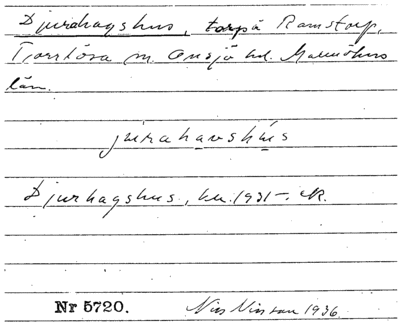 Djurahagshus, torp på Ramstorp,
Torrlösa sn. Onsjö hd. Malmöhus
län.
jurahavshus
Djurhagshus, hu. 1931-. JK.
Nr 5720. Nils Nilsson 1936.